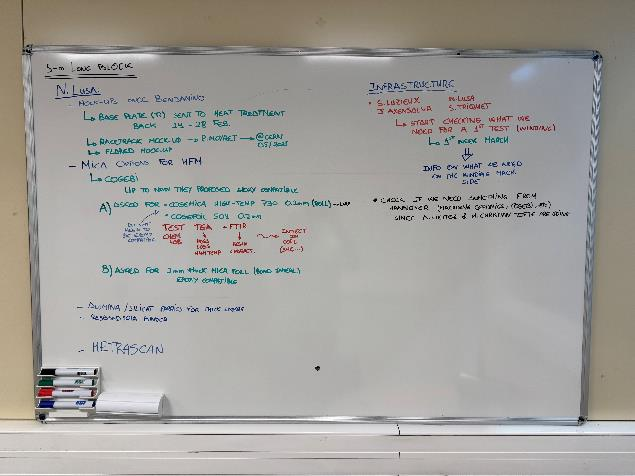 5-m LONG BLOCK
N. LUSA:
- MOCK-UPS ONCE BENDANING
↳ BASE PLATE (TI) SENT TO HEAT TREATMENT
BACK 24 - 28 FEB.
↳ RACETRACK MOCK-UP →
@CERN
↳ FLARED MOCK-UP
- MICA OPTIONS FOR HFM
↳ COGEBI
UP TO NOW THEY PROPOSED EPOXY COMPATIBLE
A) ASKED FOR - COGEMICA HIGH-TEMP 730 0.1mm (ROLL)
- COGEFOIL 504 0.2mm
TEST TGA + FTIR
CHEM LAB
MASS LOSS
HIGH TEMP
RESIN
INJECT IN COIL
B) ASKED FOR 1mm thick MICA ROLL
EPOXY COMPATIBLE
- ALUMINA / SILICAT FABRICS FOR THICK LAYERS
- METRASCAN
INFRASTRUCTURE
• S. LUZIEUX N. LUSA
S. TRIQUET
↳ START CHECKING WHAT WE
NEED FOR A 1ST TEST (WINDING)
↳ 1ST WEEK MARCH
INFO ON WHAT WE NEED
ON THE WINDING MACH.
SIDE
• CHECK IF WE NEED SOMETHING FROM
HANNOVER
SINCE